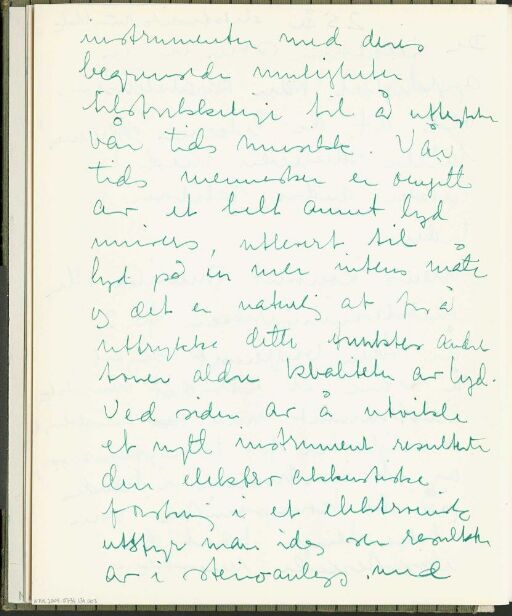 instrumenter med deres
begrensede muligheter
tilstrekkelige til å uttrykke
vår tids musikk. Vår
tids mennesker er omgitt
av et helt annet lyd
univers, utlevert til
lyd på en mer intens måte
og det er naturlig at for å
uttrykke dette andre
toner aldre kvaliteter av lyd.
Ved siden av å utvikle
et nytt instrument resulterte
den elektro akkustiske
forskning i et elektronisk
utstyr man idag ser resultatet
av i stereoanlegg med